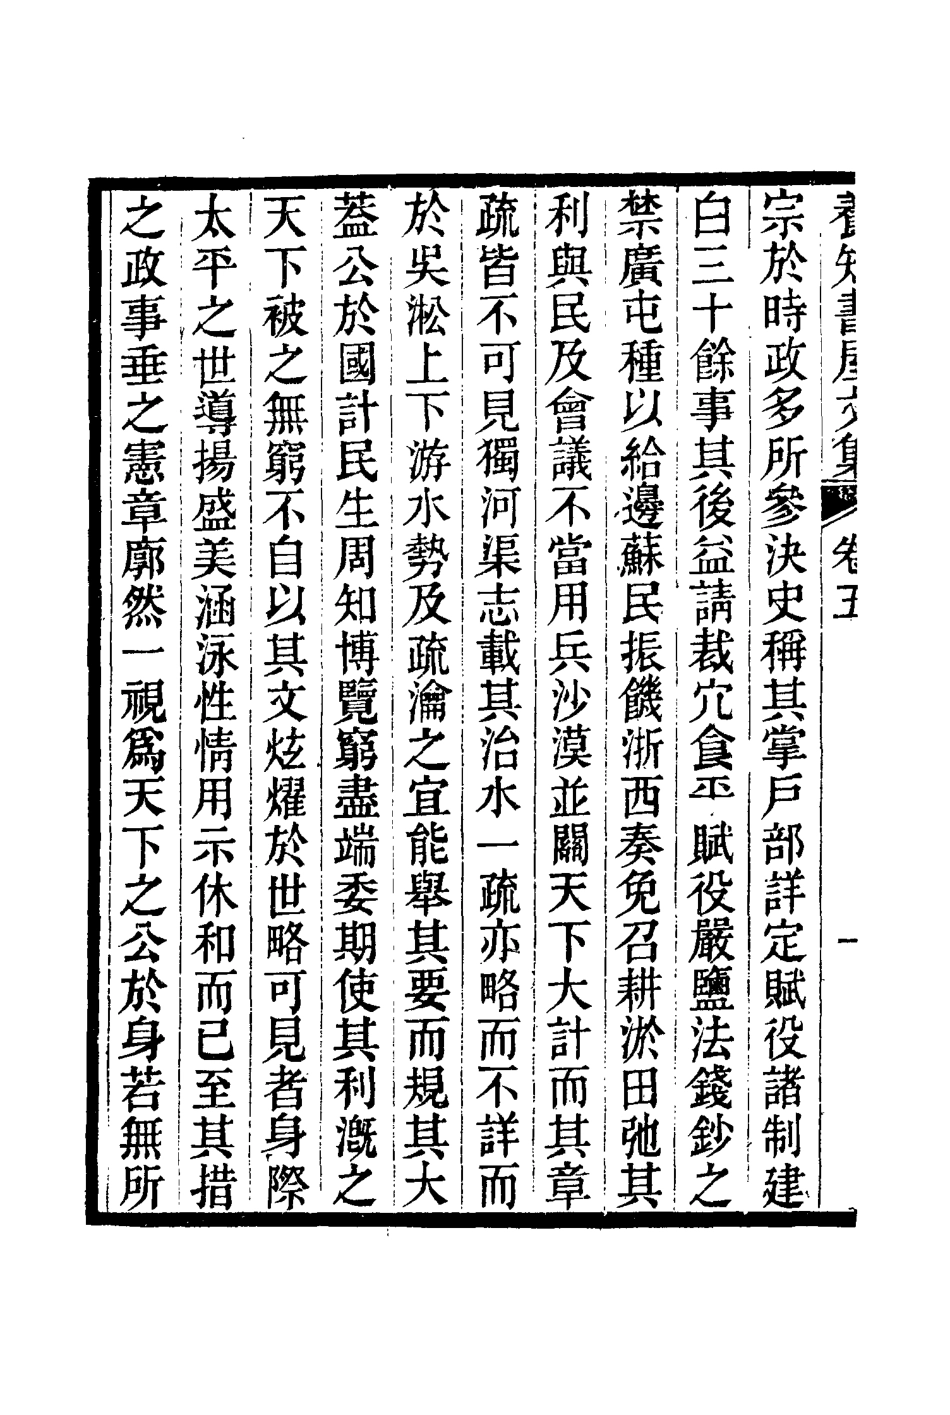 養知書屋文集 卷五 一
宗於時政多所參決史稱其掌戶部詳定賦役諸制建
白三十餘事其後益請裁冗食平賦役嚴鹽法錢鈔之
禁廣屯種以給邊蘇民振饑浙西奏免召耕淤田弛其
利與民及會議不當用兵沙漠並關天下大計而其章
疏皆不可見獨河渠志載其治水一疏亦略而不詳而
於吳淞上下游水勢及疏瀹之宜能舉其要而規其大
葢公於國計民生周知博覽窮盡端委期使其利溉之
天下被之無窮不自以其文炫燿於世略可見者身際
太平之世導揚盛美涵泳性情用示休和而已至其措
之政事垂之憲章廓然一視爲天下之公於身若無所